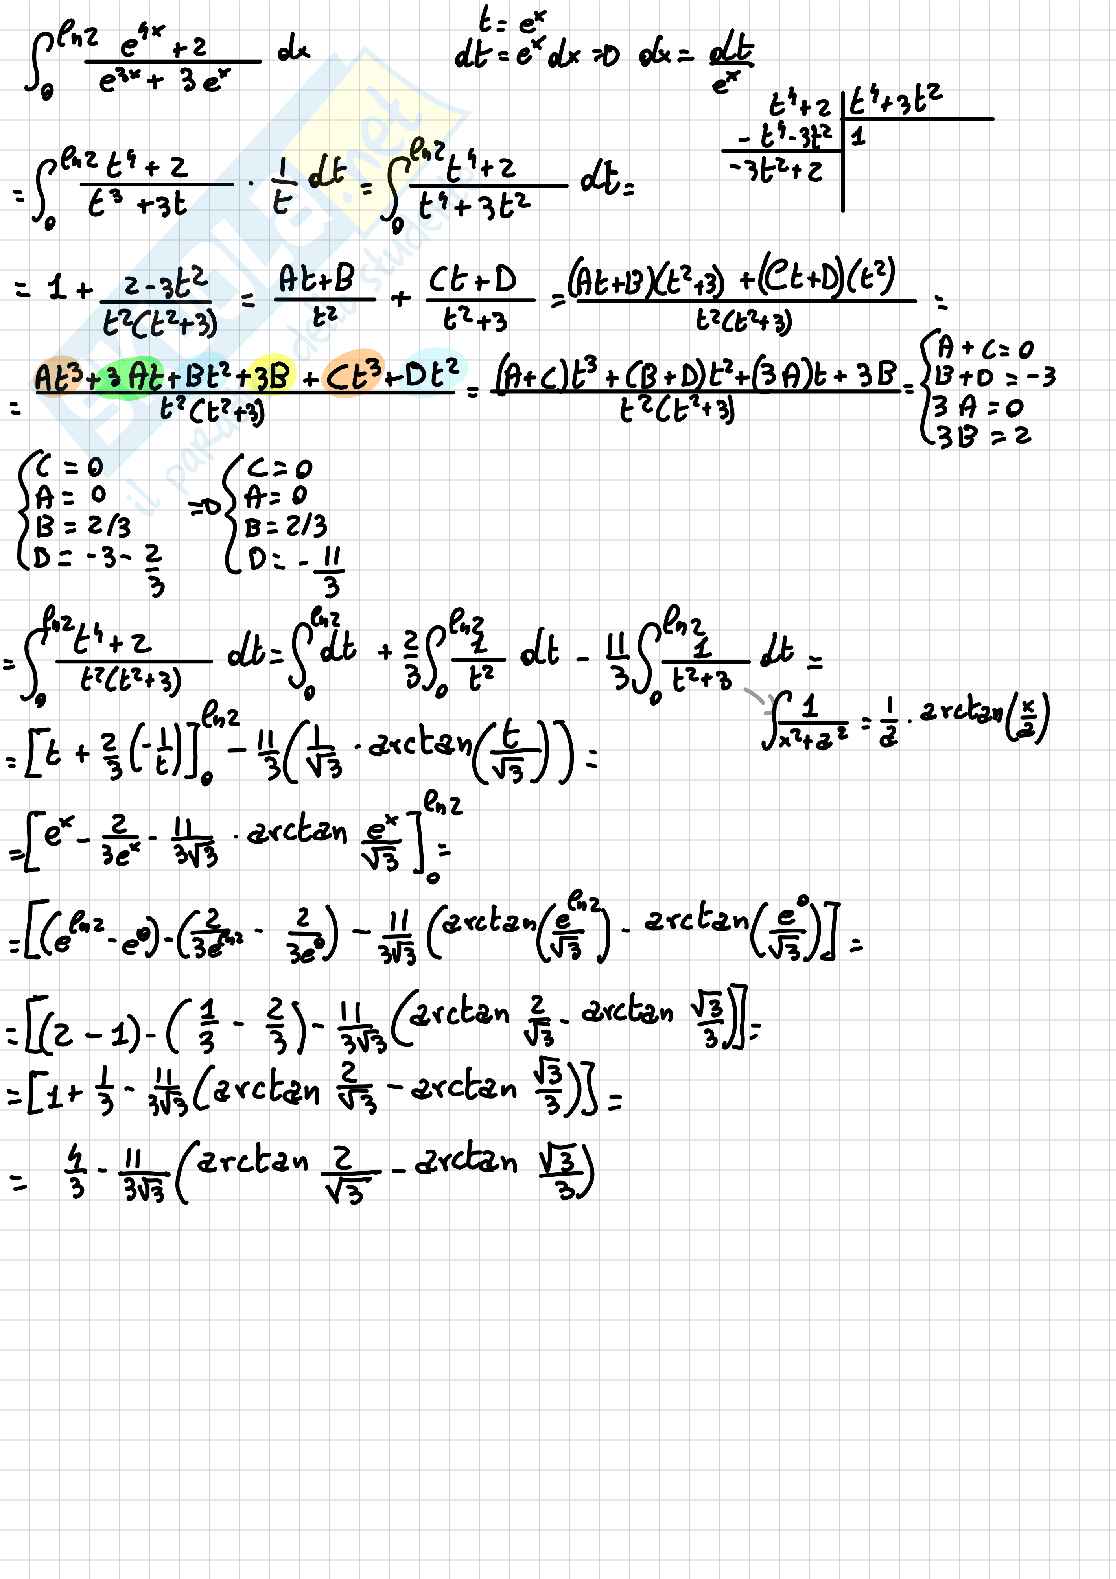 ∫₀^{ln2} (e^{4x} + 2)/(e^{3x} + 3e^x) dx
t = e^x
dt = e^x dx => dx = dt/e^x
t⁴+2 | t⁴+3t²
-t⁴-3t² | 1
-3t²+2
= ∫₀^{ln2} (t⁴ + 2)/(t³ + 3t) · 1/t dt = ∫₀^{ln2} (t⁴ + 2)/(t⁴ + 3t²) dt =
= 1 + (2 - 3t²)/(t²(t²+3)) = (At+B)/t² + (Ct+D)/(t²+3) = ((At+B)(t²+3) + (Ct+D)(t²))/(t²(t²+3)) =
= (At³ + 3At + Bt² + 3B + Ct³ + Dt²)/(t²(t²+3)) = ((A+C)t³ + (B+D)t² + (3A)t + 3B)/(t²(t²+3)) =
{ A + C = 0
B + D = -3
3A = 0
3B = 2
{ C = 0 => { C = 0
A = 0 A = 0
B = 2/3 B = 2/3
D = -3 - 2/3 D = - 11/3
= ∫₀^{ln2} (t⁴ + 2)/(t²(t²+3)) dt = ∫₀^{ln2} dt + 2/3 ∫₀^{ln2} 1/t² dt - 11/3 ∫₀^{ln2} 1/(t²+3) dt =
∫ 1/(x²+a²) = 1/a · arctan(x/a)
= [t + 2/3 (-1/t)]₀^{ln2} - 11/3 (1/√3 · arctan(t/√3)) =
= [e^x - 2/(3e^x) - 11/(3√3) · arctan e^x/√3]₀^{ln2} =
= [(e^{ln2} - e⁰) - (2/(3e^{ln2}) - 2/(3e⁰)) - 11/(3√3) (arctan(e^{ln2}/√3) - arctan(e⁰/√3))] =
= [(2 - 1) - (1/3 - 2/3) - 11/(3√3) (arctan 2/√3 - arctan √3/3)] =
= [1 + 1/3 - 11/(3√3) (arctan 2/√3 - arctan √3/3)] =
= 4/3 - 11/(3√3) (arctan 2/√3 - arctan √3/3)